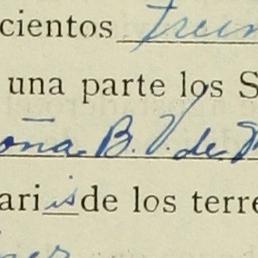 cientos Trein
una parte los S
oña B. V. de
ari is de los terre